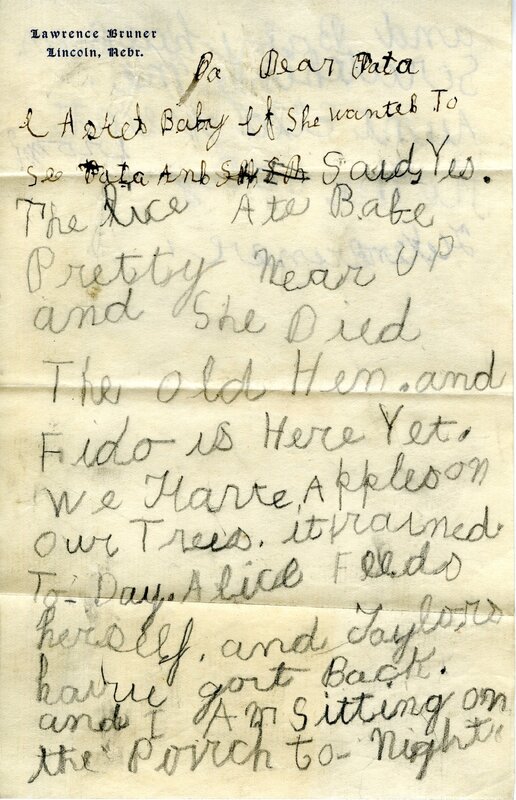 Lawrence Bruner
Lincoln, Nebr.
Pa Dear Pata
I Asket Baby If She Wanted To
Se Pata And Said, Yes.
The lice Ate Babe
Pretty Near Up
and She Died
The old Hen. and
Fido is Here Yet.
We Harve Apples on
our Trees. it rained
To-Day. Alice Feeds
herself, and Taylors
havue gort Back.
and I Am Sitting on
the Porrch to-Night.